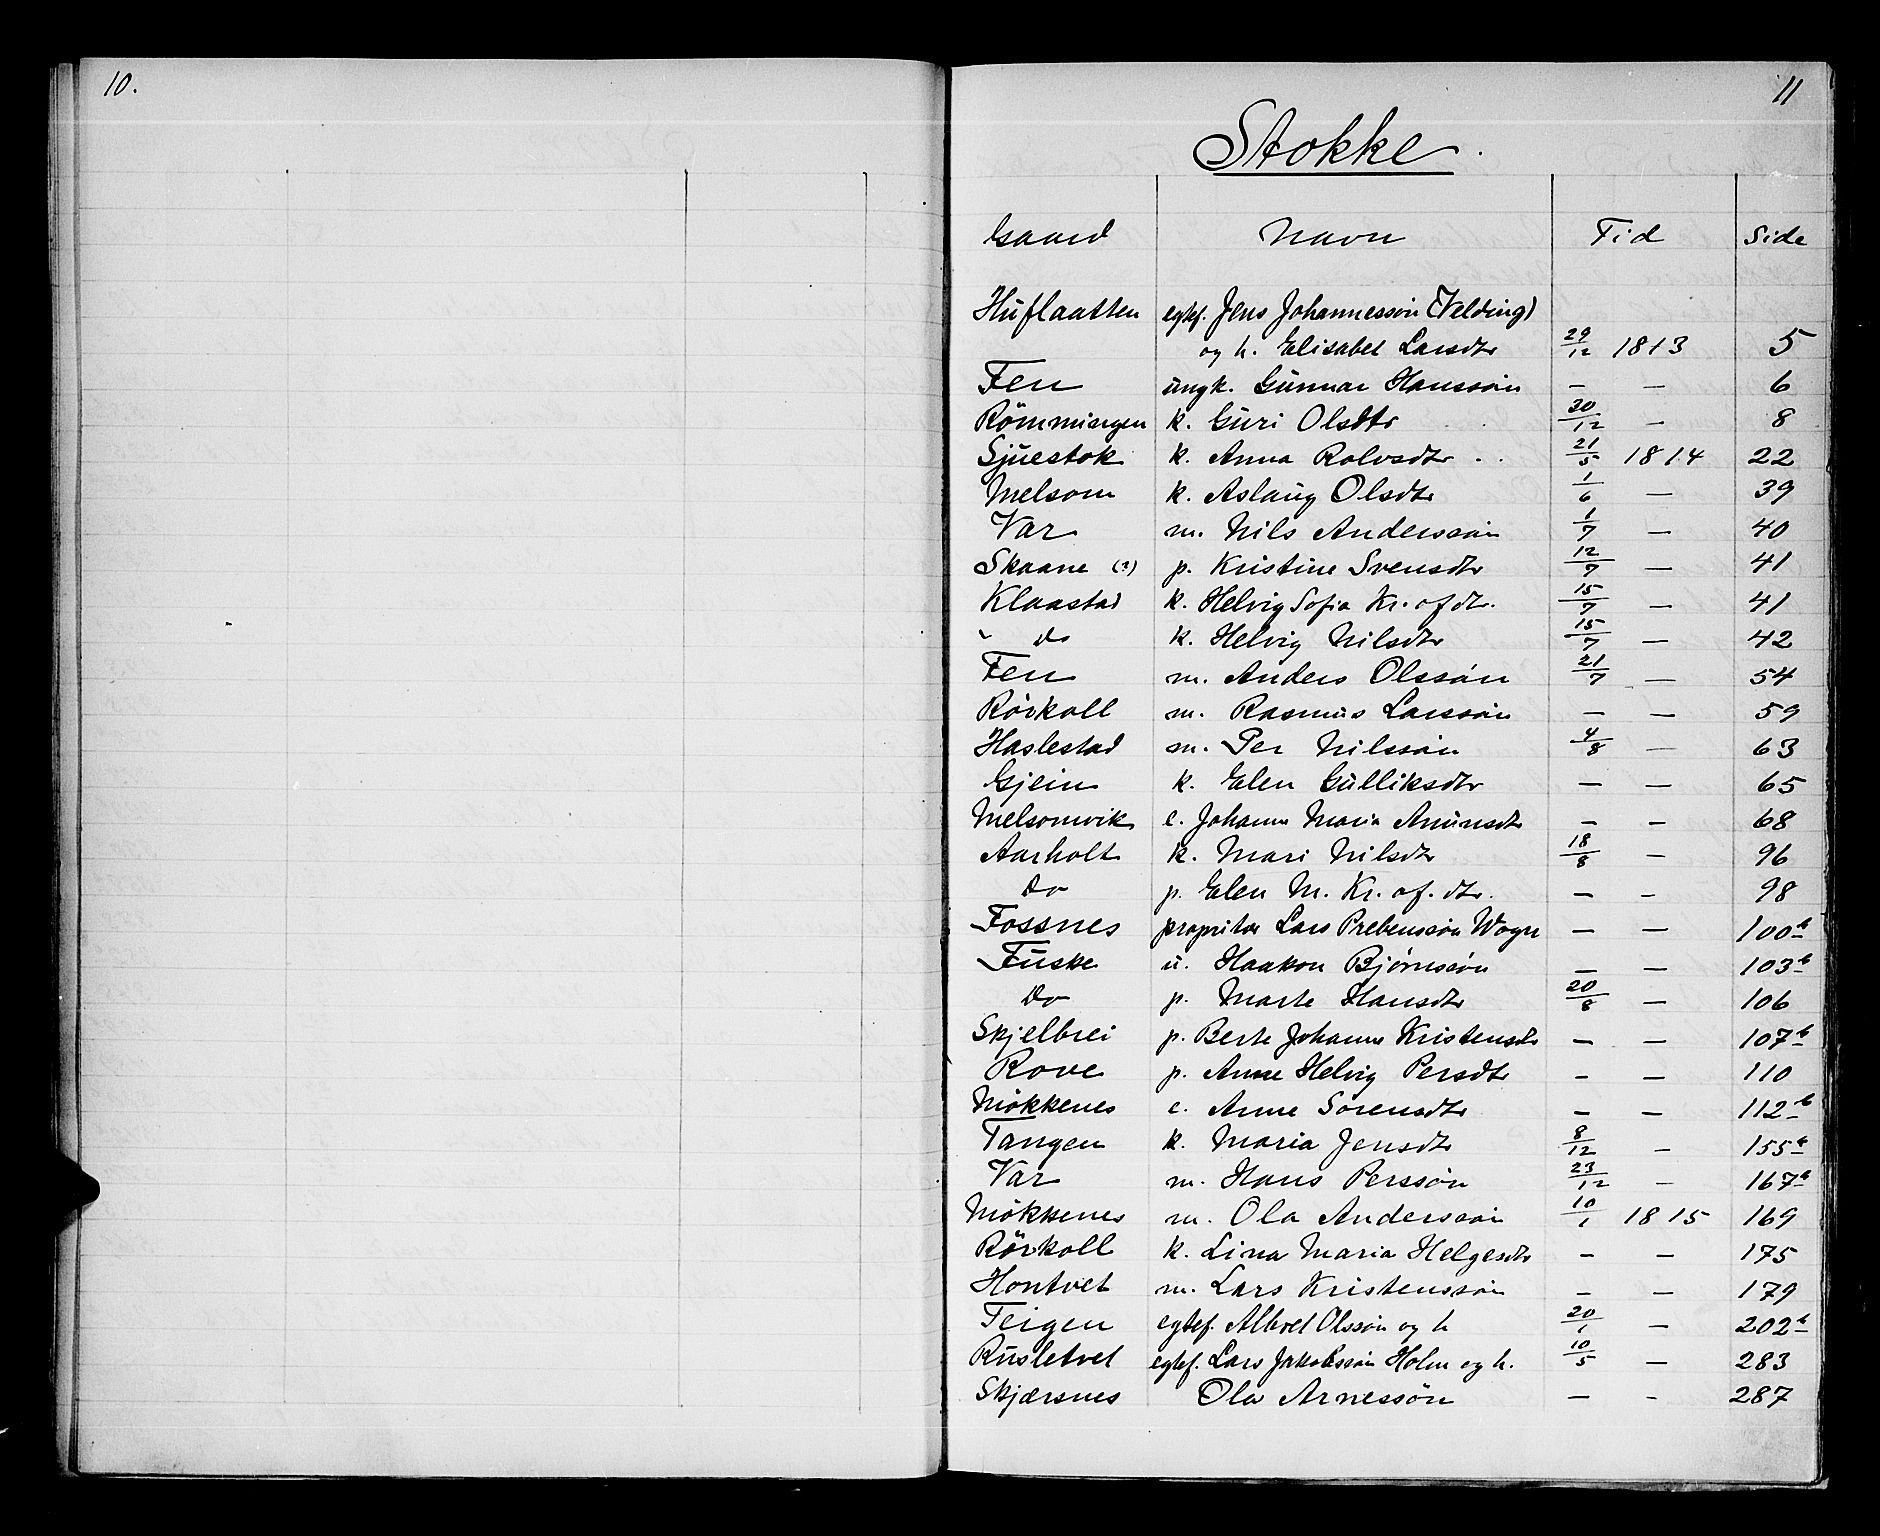 10.
11
Stokke.
Gaard Navn Tid Side
Huflaatten egtef. Jens Johannessøn (Velding)
og h. Elisabet Larsdtr 29/12 1813 5
Fen ungk. Gunnar Hanssøn — — 6
Römmingen k. Guri Olsdtr 30/12 — 8
Sjuestok k. Anna Rolvsdtr 21/5 1814 22
Melsom k. Aslaug Olsdtr 1/6 — 39
Var m. Nils Anderssøn 1/7 — 40
Skaane (?) p. Kristine Svensdtr 12/7 — 41
Klaastad k. Helvig Sofia Kr. of dtr. 15/7 — 41
" do k. Helvig Nilsdtr 15/7 — 42
Fen m. Anders Olssøn 21/7 — 54
Rörkoll m. Rasmus Larssøn — — 59
Haslestad m. Per Nilssøn 4/8 — 63
Gjein k. Elen Gulliksdtr — — 65
Melsomvik e. Johanne Maria Amunsdtr — — 68
Aarholt k. Mari Nilsdtr 18/8 — 96
Do p. Elen M. Kr. of. dtr. — — 98
Fossnes propritær Lars Prebenssøn Wogn — — 100b
Fuske u. Haakon Bjørnssøn — — 103b
Do p. Marte Hansdtr 20/8 — 106
Skjelbrei p. Berte Johanne Kristensdtr — — 107b
Rove p. Anne Helvig Persdtr — — 110
Møkkenes e. Anne Sørensdtr — — 112b
Tangen k. Maria Jensdtr 8/12 — 155b
Var m. Hans Perssøn 23/12 — 167b
Møkkenes m. Ola Anderssøn 10/1 1815 169
Rörkoll k. Lina Maria Helgesdtr — — 175
Hontvet m. Lars Kristenssøn — — 179
Teigen egtef. Albret Olssøn og h 20/1 — 202b
Rusletvet egtef. Lars Jakobssøn Holm og h. 10/5 — 283
Skjærsnes Ola Arnessøn — — 287